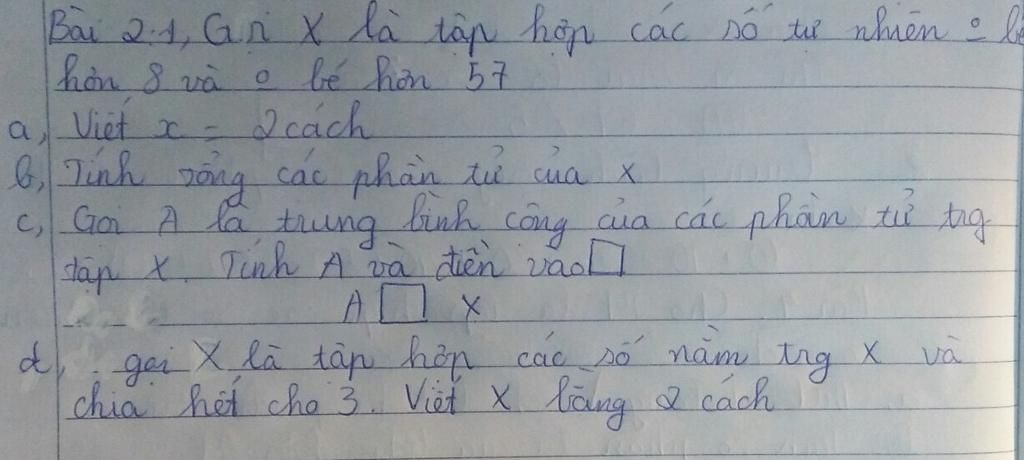 Bài 2.1, Gọi X là tập hợp các số tự nhiên o bé
hơn 8 và o bé hơn 57
a, Viết x = 2 cách
b, Tính tổng các phần tử của x
c, Gọi A là trung bình cộng của các phần tử trg
tập X. Tính A và điền vào □
A □ X
d, gọi X là tập hợp các số nằm trg X và
chia hết cho 3. Viết X bằng 2 cách